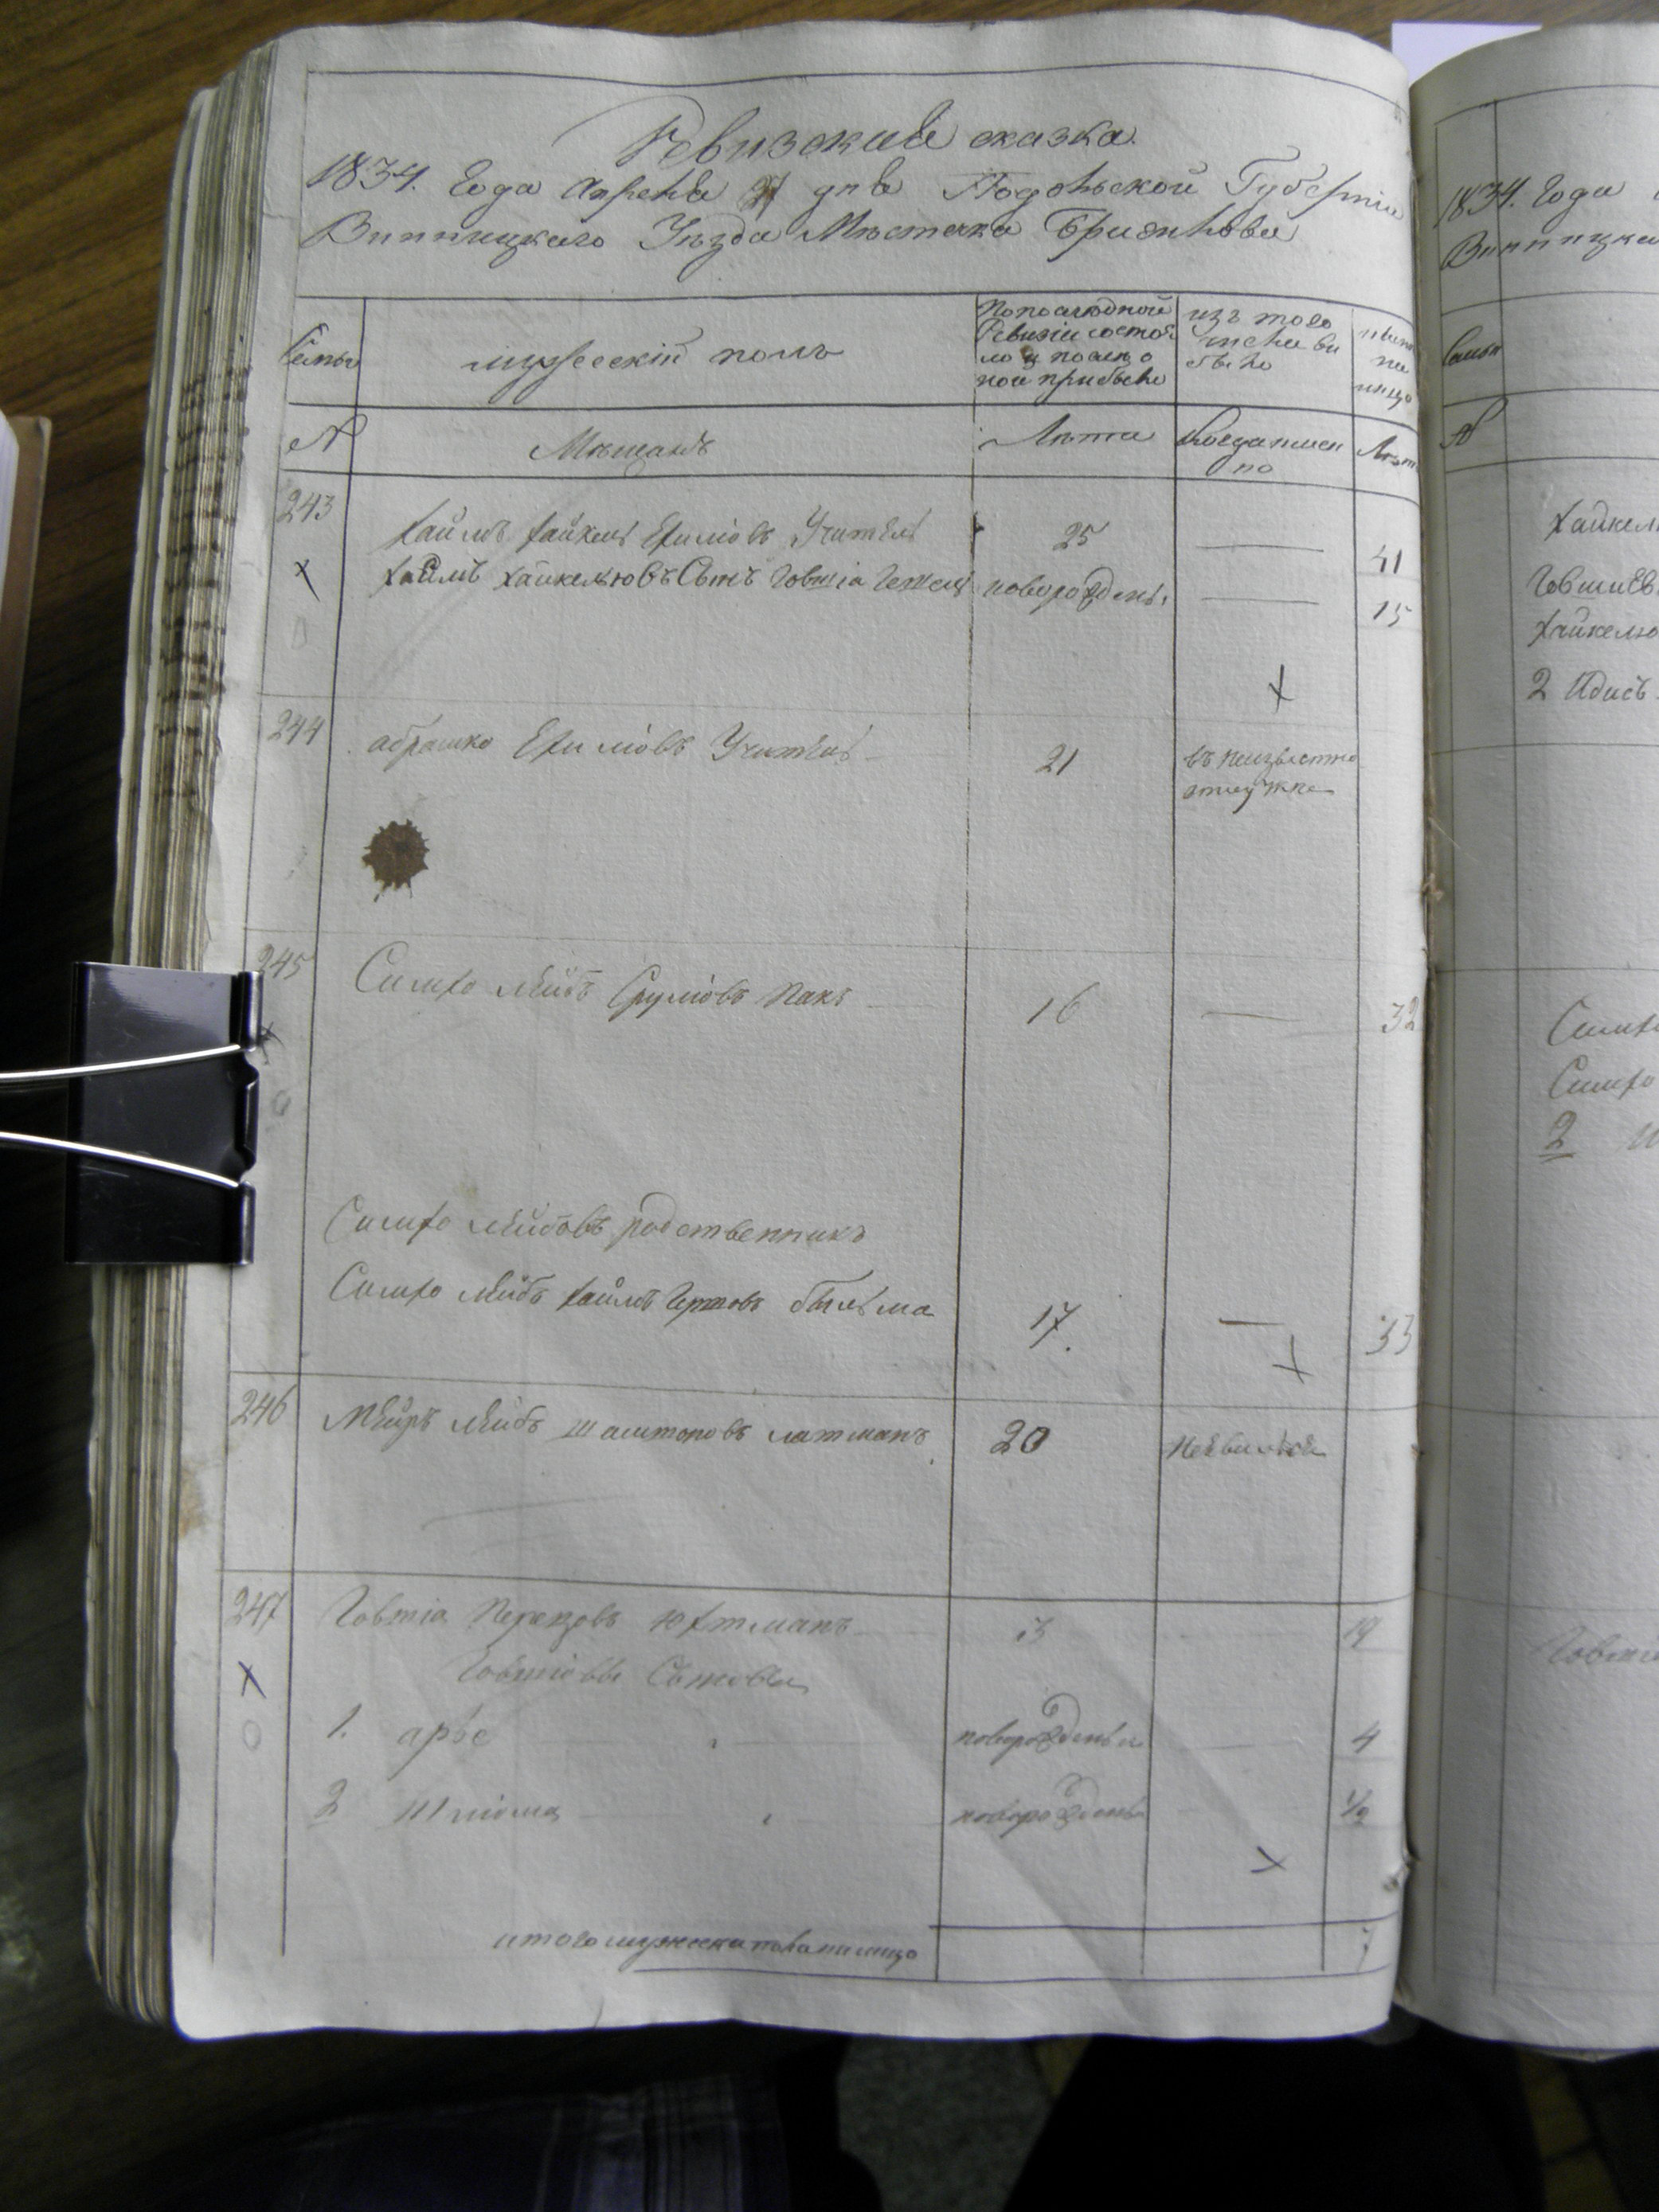 Ревизская сказка
1834. Года Апреля 27 дня Подольской Губерніи
Винницкаго Уезда Местечка Браилова
Семьи
мужескій полъ
По последной Ревизіи состоя ло и после о ной прибыло
изъ того числа вы было
ныне на лицо
№
Мещанъ
Лета
Когда имен но
Лет
243
Хаимъ Хайкель Ехиліовъ Учитель
25
41
Хаимъ Хайкелювъ Сынъ Іовшіа Гешель
новорожден.
15
244
абрашко Ехиліовъ Учитель
21
въ неизвестно отлучке
245
Симхо Лейбъ Сруліовъ Пакъ
16
32
Симхо Лейбовъ родственникъ
Симхо Лейбъ Хаимъ
17.
33
246
Мейръ Лейбъ латманъ
20
247
Іовшіа Перецовъ Юхтманъ
3
19
Іовшіовы Сыновья
1. арье
новорожденъ
4
2 Шліома
новорожденъ
1/2
итого мужеска пола налицо
7
1834. Года
Винницка
Семьи
№
Хайкел
Іовшиев
Хайкелю
2 Идись
Симхо
Симхо
2
Іовші